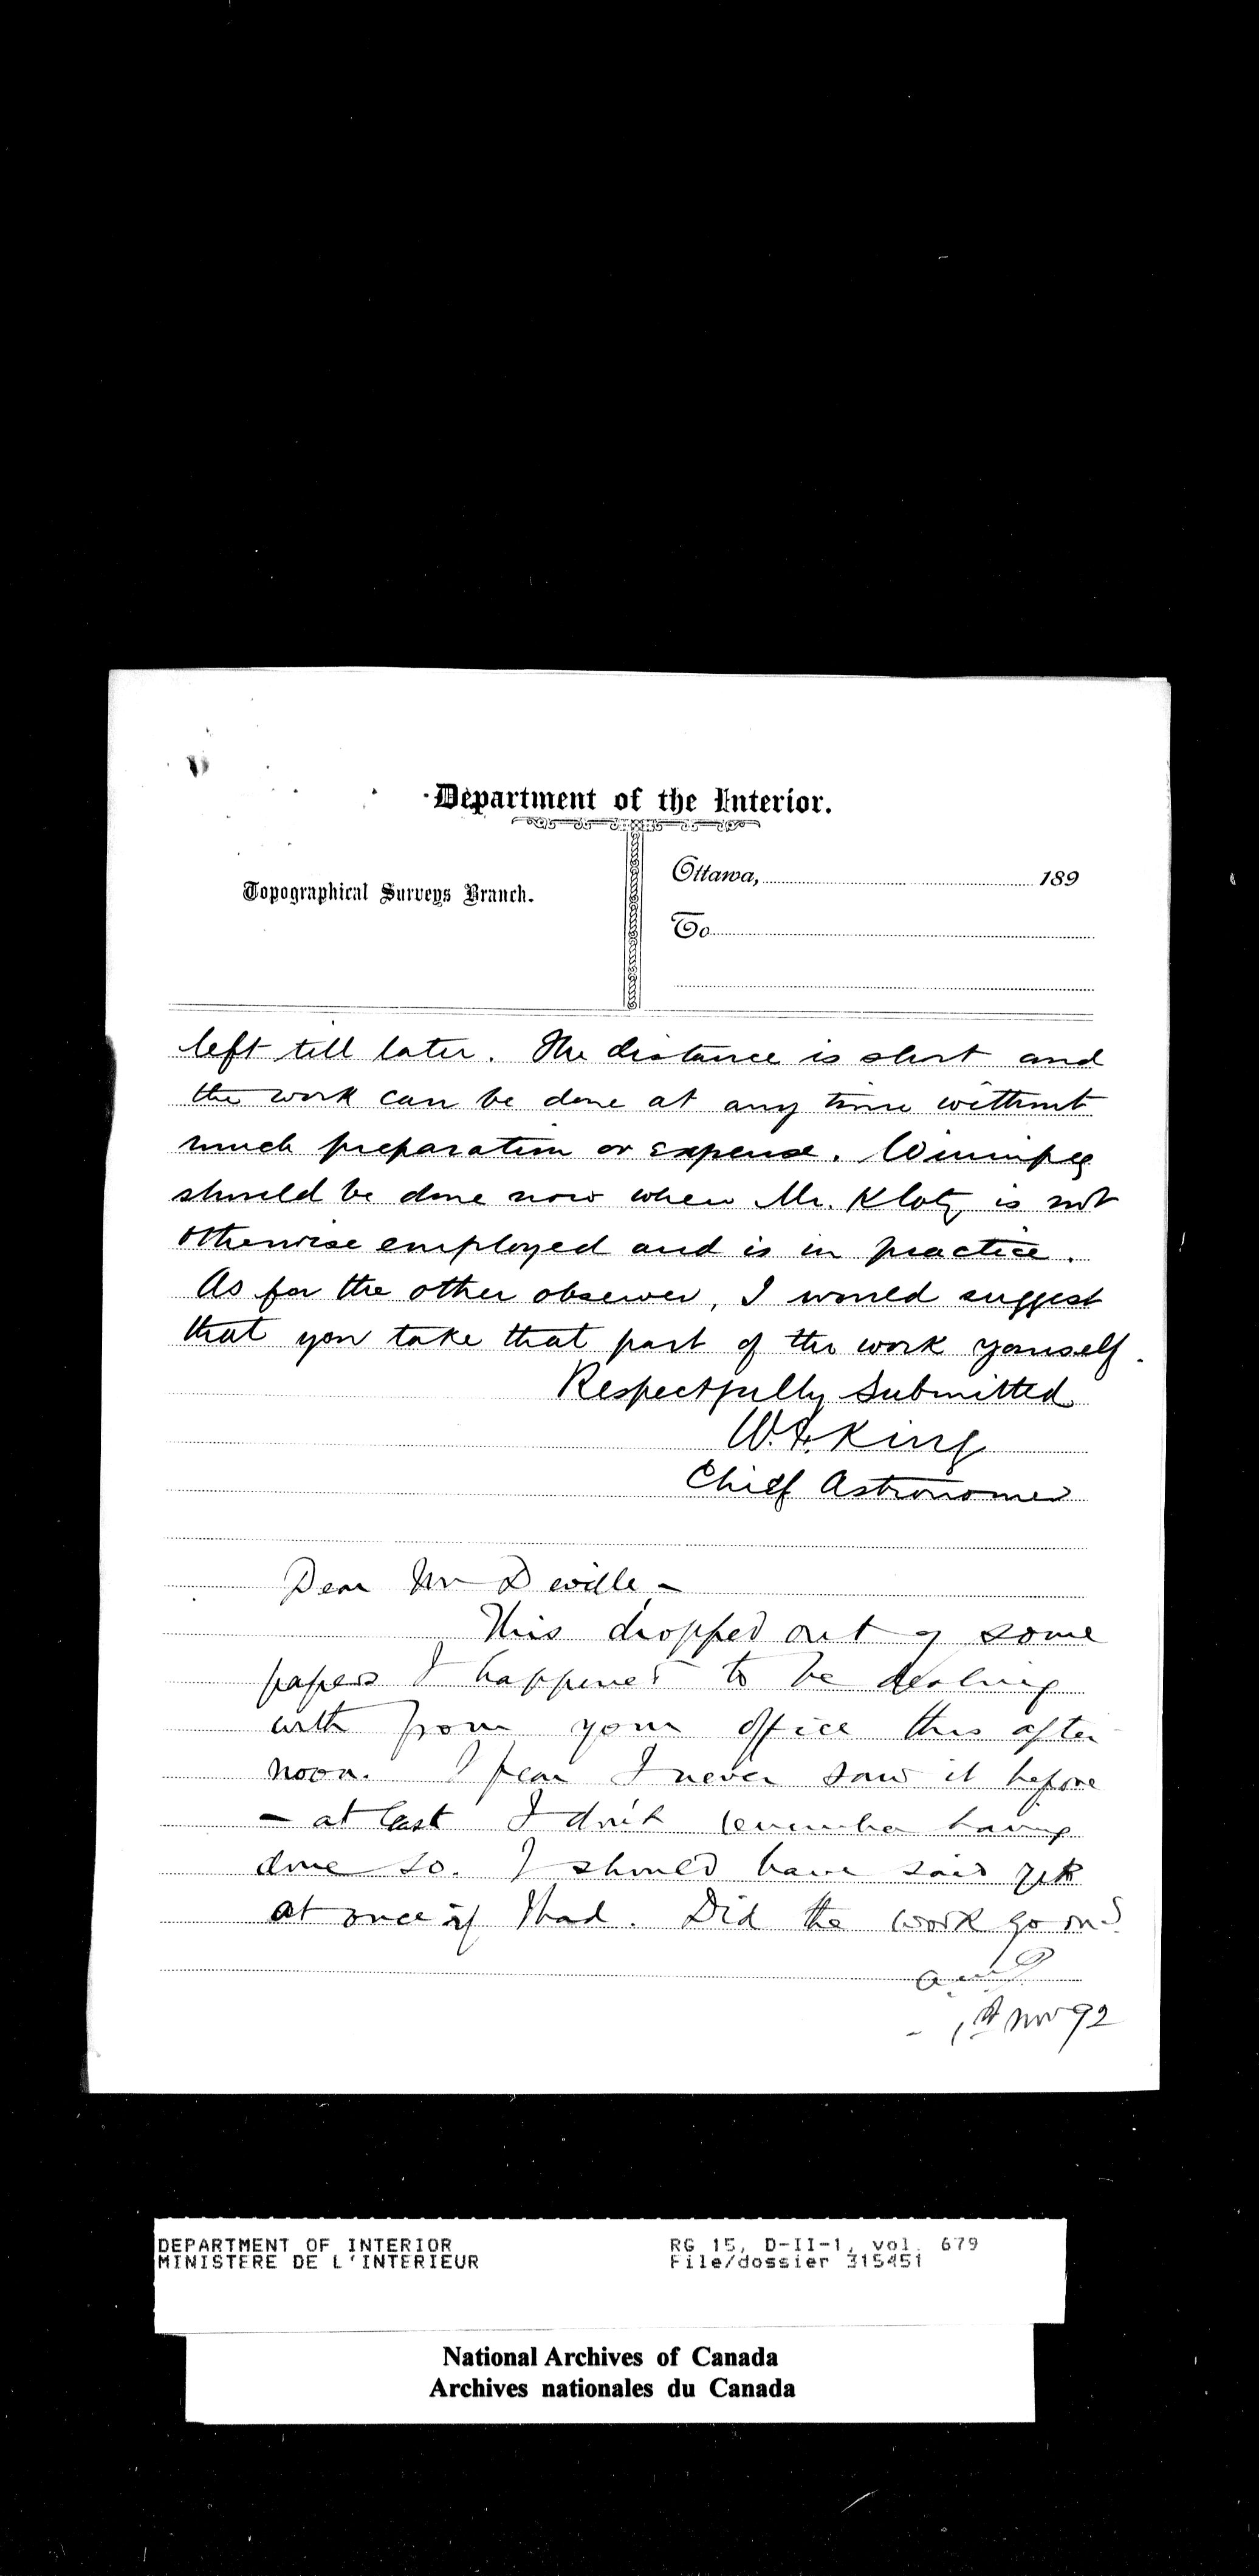 Department of the Interior.
Topographical Surveys Branch.
Ottawa, 189
To
left till later. The distance is short and
the work can be done at any time without
much preparation or expense. Winnipeg
should be done now when Mr. Klotz is not
otherwise employed and is in practice.
As for the other observer, I would suggest
that you take that part of the work yourself.
Respectfully Submitted
W.F. King
Chief Astronomer
Dear Mr Deville, –
This dropped out of some
papers I happened to be dealing
with from your office this after
noon. I fear I never saw it before
– at least I don't remember having
done so. I should have said yes
at once if I had. Did the work go on?
– 1st Nov 92
DEPARTMENT OF INTERIOR
MINISTERE DE L'INTERIEUR
RG 15, D-II-1, vol. 679
File/dossier 315451
National Archives of Canada
Archives nationales du Canada